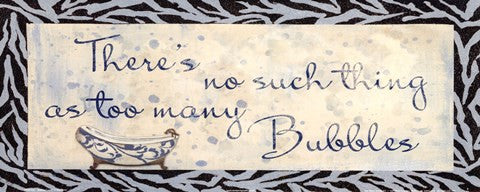 There's
no such thing
as too many
Bubbles